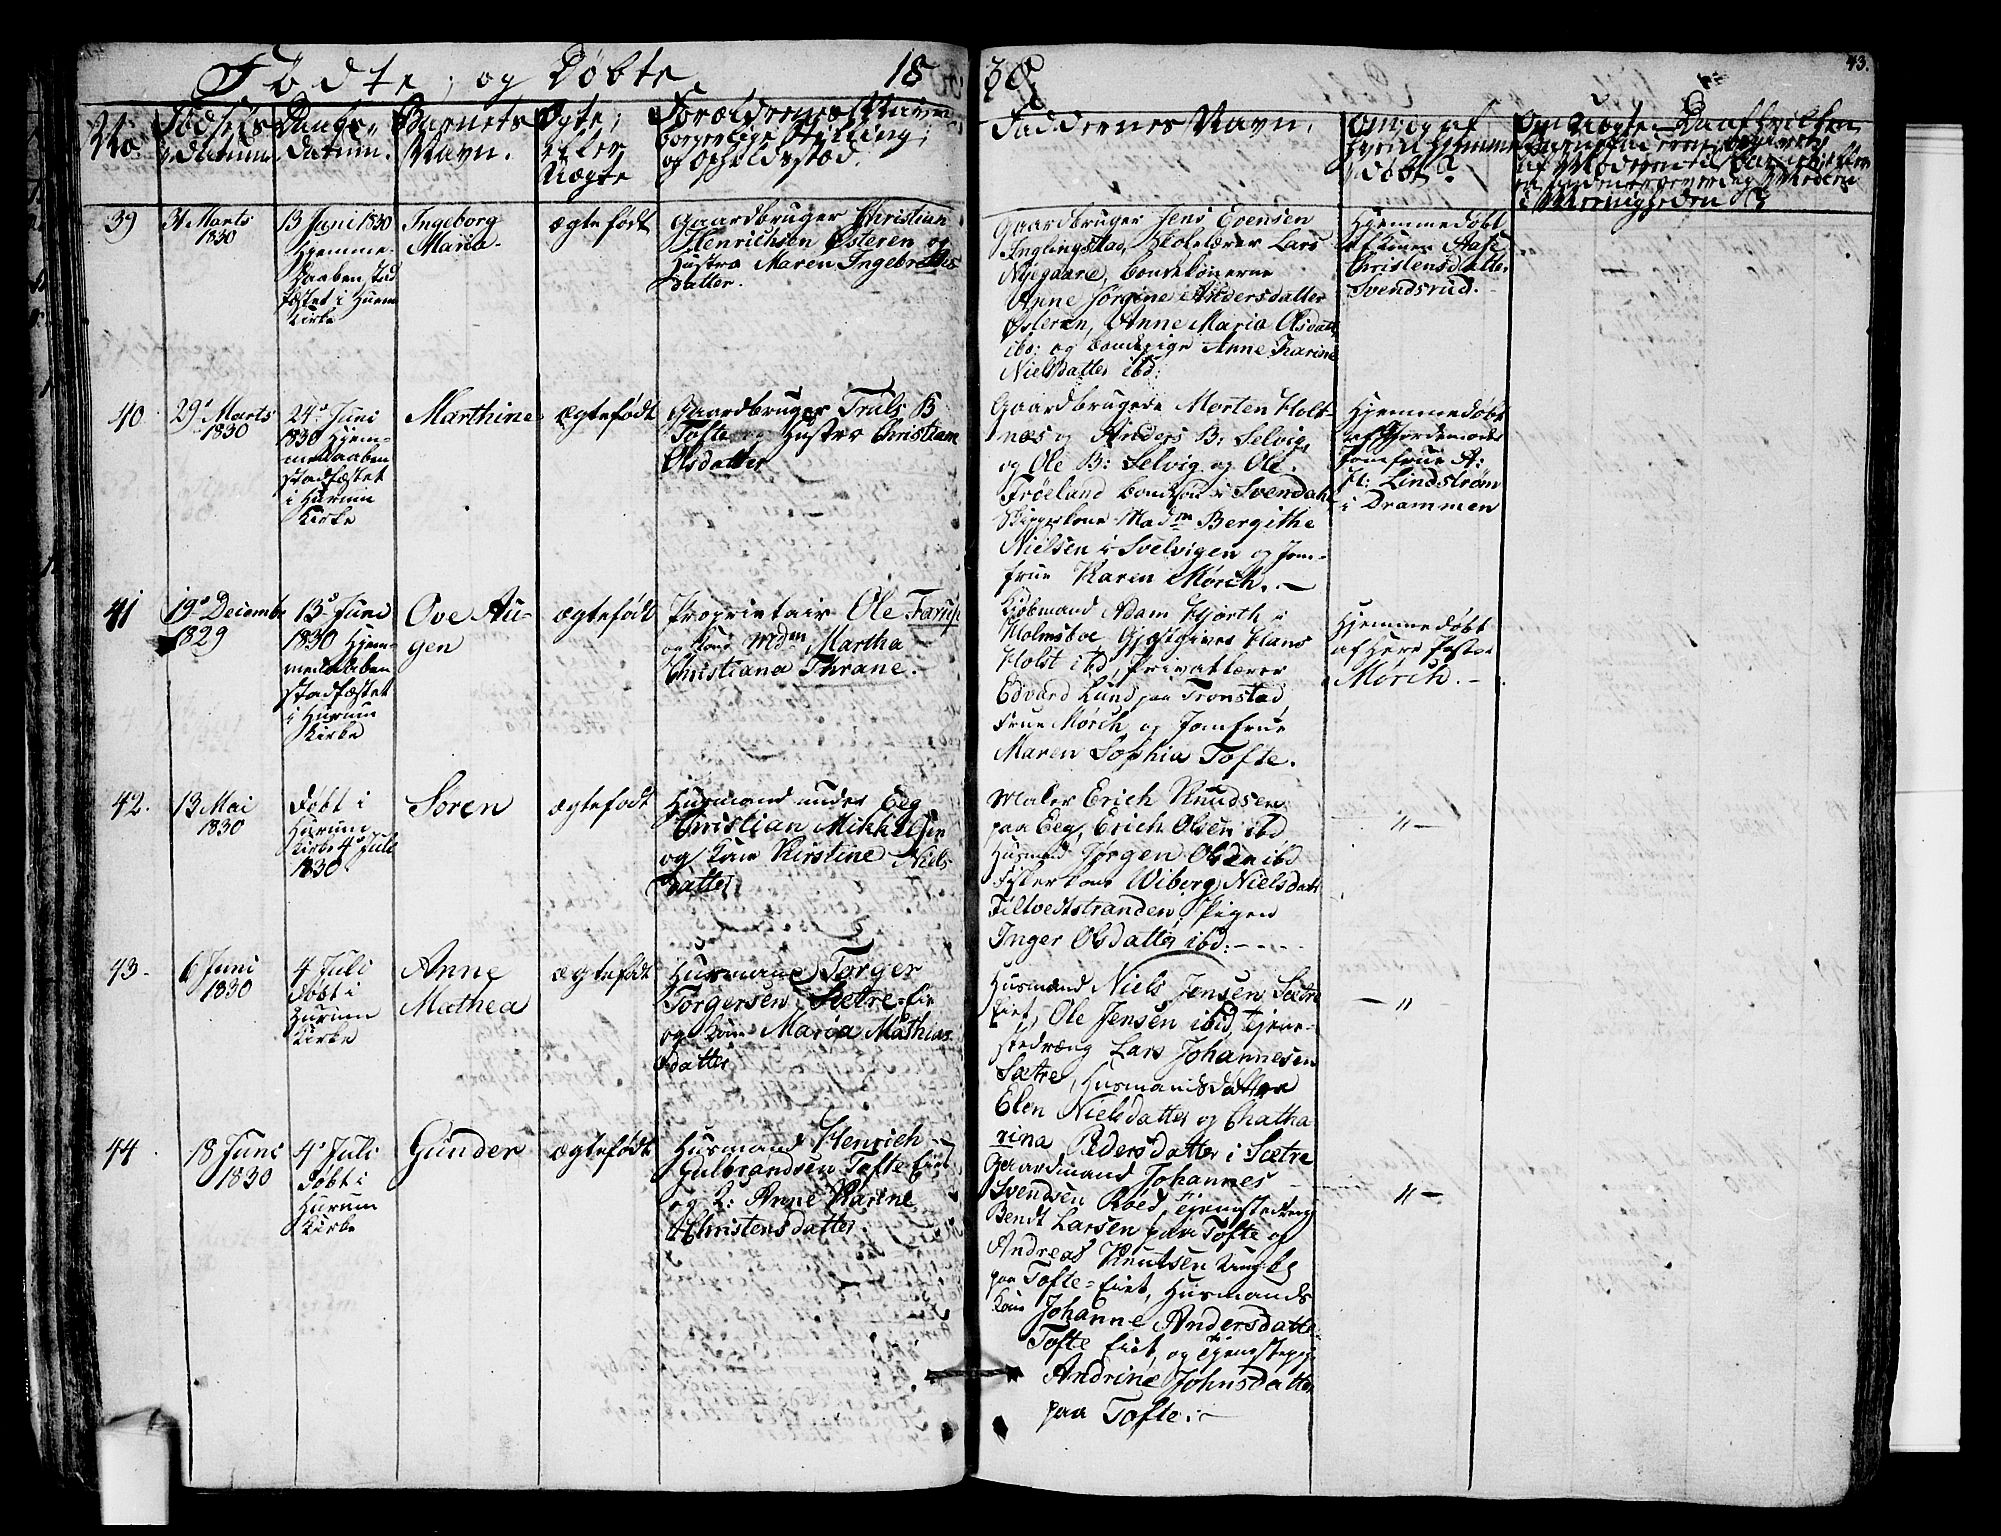 Fødte, og Døbte. 18
30
43.
No. Fødsels Datum. Daabs Datum. Barnets Navn. Ægte, eller Uægte Forældrenes Navn, borgerlige Stilling, og Opholdssted.
Faddernes Navn. Om, og af hvem hjemmedøbt?
39
31 Marts
1830
13 Juni 1830
Hjemme-
daaben stad
fæstet i Hurum
Kirke
Ingeborg
Maria
ægtefødt
Gaardbruger Christian
Henrichsen Østeren og
Hustro Maren Ingebrets
datter.
Gaardbruger Jens Evensen
Inglingstad, Skolelærer Lars
Nyegaare, bondekonerne
Anne Jørgine Andersdatter
Østeren, Anne Maria Olsdatt
ibd: og bondepige Anne Karine
Nielsdatter ibd.
Hjemmedøbt
af Konen Aase
Christensdatter
Svendsrud.
40
29 Marts
1830
24 Juni
1830 Hjem-
medaaben
stadfæstet
i Hurum
Kirke
Marthine
ægtefødt
Gaardbruger Truls B
Tofte og Hustro Christiane
Olsdatter
Gaardbrugere Morten Holt-
næs og Anders B: Selvig,
og Ole B: Selvig og Ole
Frøeland
Skipperkone Madm Bergithe
Nielsen i Svelvigen og Jom-
frue Karen Mørch. —
Hjemmedøbt
af Gjordemoder
Jomfrue A:
H: Lindstrøm
i Drammen
41
19 Decembr
1829
13 Juni
1830 Hjem-
medaaben
stadfæstet
i Hurum
Kirke
Ove Au-
gen
ægtefødt
Proprietair Ole Farup
og Kone Mdm Martha
Christiana Thrane.
Kjøbmand Adam Hjorth i
Holmsboe Gjæstgiver Hans
Holst ibd, Privatlærer
Edvard Lund paa Tronstad
Frue Mørch, og Jomfrue
Maren Sophia Tofte.
Hjemmedøbt
af Herr Pastor
Mørch. —
42.
13 Mai
1830
Døbt i
Hurum
Kirke 4 Juli
1830.
Søren
ægtefødt
Husmand under Eeg
Christian Mikkelsen
og Kone Kirstine Niels
datter
Maler Erich Knudsen
paa Eeg, Erich Olsen ibd
Husmd Jørgen Olsen ibd
Fisker kone Wiberg Nielsdatt
Filtvedtstranden, Pigen
Inger Olsdatter ibd. —
— " —
43.
6 Juni
1830
4 Juli
Døbt i
Hurum
Kirke
Anne
Mathea
ægtefødt
Husmand Torger
Torgersen Sætre-Eie
og Kone Maria Mathias
datter
Husmænd Niels Jensen Sætre
Eiet, Ole Jensen ibid, Tjene-
stedræng Lars Johannesen
Sætre, Husmandsdøttre
Elen Nielsdatter og Chatha
rina Pedersdatter i Sætre
— "
44
18 Juni
1830
4 Juli
Døbt i
Hurum
Kirke
Gunder
ægtefødt
Husmand Henrich
Gulbrandsen Tofte Eiet
og K: Anne Karine
Christensdatter
Gaardmand Johannes
Svendsen Røed, Tjenestedreng
Bendt Larsen paa Tofte og
Andreas Knutsen
paa Tofte-Eiet, Husmands
Kone Johanne Andersdatter
Tofte Eiet, og Tjenestepige
Andrine Johnsdatter
paa Tofte. —
" —